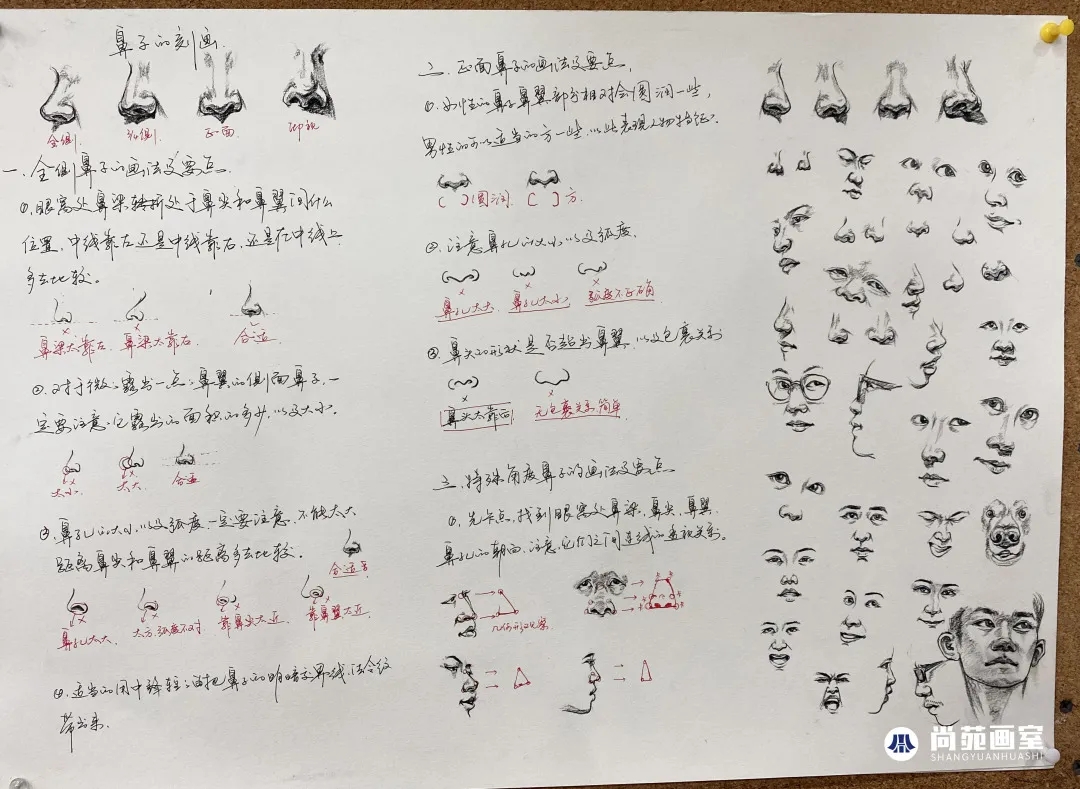 鼻子的刻画.
全侧. 3/4侧. 正面 仰视
一.全侧鼻子的画法及要点.
①.眼窝处鼻梁转折处于鼻尖和鼻翼间什么
位置.中线靠左还是中线靠右.还是在中线上
多去比较。
鼻梁太靠左 鼻梁太靠右 合适
②.对于微微露出一点点鼻翼的侧面鼻子.一
定要注意它露出的面积的多少.以及大小.
太小. 太大. 合适
③.鼻孔的大小以及弧度一定要注意.不能太大
距离鼻尖和鼻翼的距离多去比较.
合适
鼻孔太大. 太方.弧度不对. 靠鼻头太近. 靠鼻翼太近
④.适当的用中锋轻轻的把鼻子的明暗交界线.法令纹
带出来.
二.正面鼻子的画法及要点.
①.女性的鼻子鼻翼部分相对会圆润一些,
男性的可以适当的方一些.以此表现人物特征.
( )圆润. [ ]方.
②.注意鼻孔的大小以及弧度.
鼻孔太大. 鼻孔太小. 弧度不正确
③.鼻头的形状是否超出鼻翼.以及包裹关系
鼻头太靠 无包裹关系.简单
三.特殊角度鼻子的画法及要点.
①.先卡点,找到眼窝处鼻梁.鼻尖.鼻翼.
鼻孔的朝向.注意它们之间连线的透视关系。
几何形观察
尚苑画室
SHANGYUANHUASHI